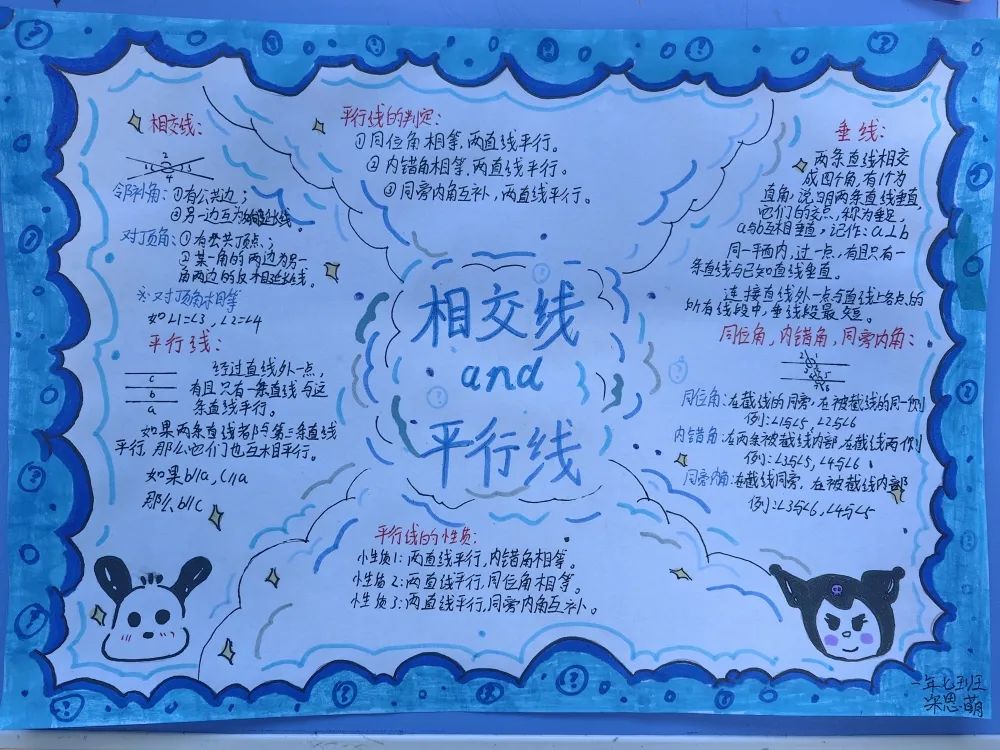 相交线:
2
1 3
4
邻补角:①有公共边;
②另一边互为反向延长线。
对顶角:①有公共顶点;
②某一角的两边为另一
角两边的反相延长线。
※对顶角相等
如∠1=∠3,∠2=∠4
平行线:
c
b
a
经过直线外一点,
有且只有一条直线与这
条直线平行。
如果两条直线都与第三条直线
平行,那么它们也互相平行。
如果b∥a,c∥a
那么b∥c
平行线的判定:
①同位角相等,两直线平行。
②内错角相等,两直线平行。
③同旁内角互补,两直线平行。
相交线
and
平行线
平行线的性质:
性质1:两直线平行,内错角相等。
性质2:两直线平行,同位角相等。
性质3:两直线平行,同旁内角互补。
垂线:
两条直线相交
成四个角,有1个为
直角,说明两条直线垂直,
它们的交点,称为垂足,
a与b互相垂直,记作:a⊥b
同一平面内,过一点,有且只有一
条直线与已知直线垂直。
连接直线外一点与直线上各点的
所有线段中,垂线段最短。
同位角,内错角,同旁内角:
同位角:在截线的同旁,在被截线的同一侧
例:∠1与∠5,∠2与∠6
内错角:在两条被截线内部,在截线两侧
例:∠3与∠5,∠4与∠6
同旁内角:在截线同旁,在被截线内部
例:∠3与∠6,∠4与∠5
一年七班
梁思萌